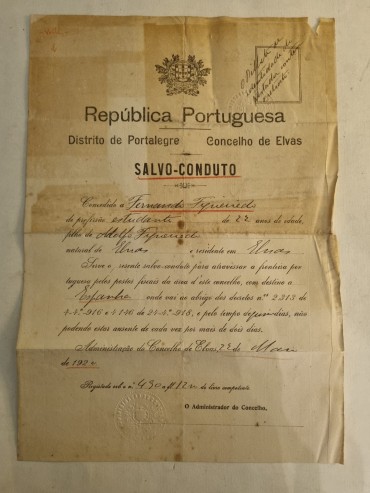 República Portuguesa
Distrito de Portalegre Concelho de Elvas
SALVO-CONDUTO
Concedido a Fernando Figueiredo
de profissão estudante de 22 anos de edade,
filho de Adolfo Figueiredo
natural de Elvas e residente em Elvas
Serve o presente salvo-conduto para atravessar a fronteira por-
tuguesa pelos postos fiscaes da área d'este concelho, com destino a
Espanha onde vae ao abrigo dos decretos n.º 2313 de
4-4.º-916 e 4146 de 24-4.º-918, e pelo tempo de dias, não
podendo estar ausente de cada vez por mais de dois dias.
Administração do Concelho de Elvas, 22 de Maio
de 192
Registado sob o n.º 430 a fl. 82 do livro competente
O Administrador do Concelho,